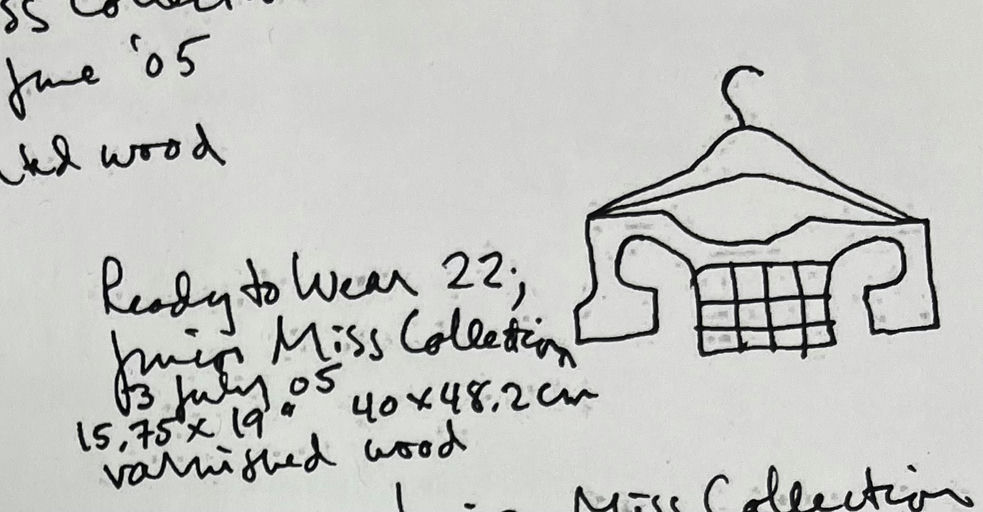 ss Collection
June '05
ted wood
Ready to Wear 22;
Junior Miss Collection
13 July 05
15.75 x 19" 40 x 48.2 cm
varnished wood
Miss Collection